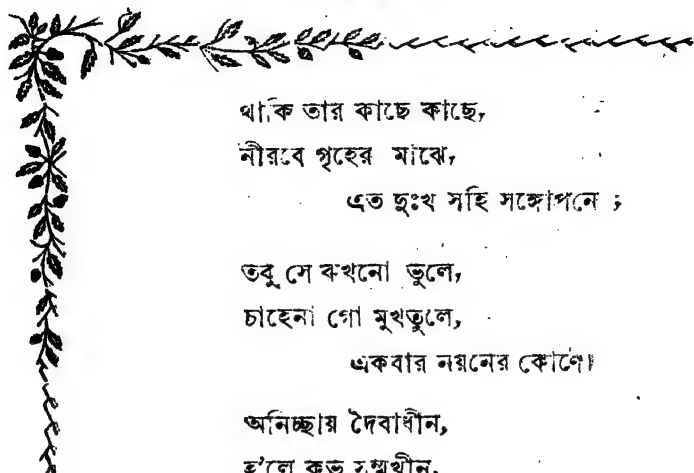 থাকি তার কাছে কাছে,
নীরবে গৃহের মাঝে,
এত দুঃখ সহি সঙ্গোপনে ;
তবু সে কখনো ভুলে,
চাহেনা গো মুখতুলে,
একবার নয়নের কোণে।
অনিচ্ছায় দৈবাধীন,
হ'লে কভু সম্মুখীন,